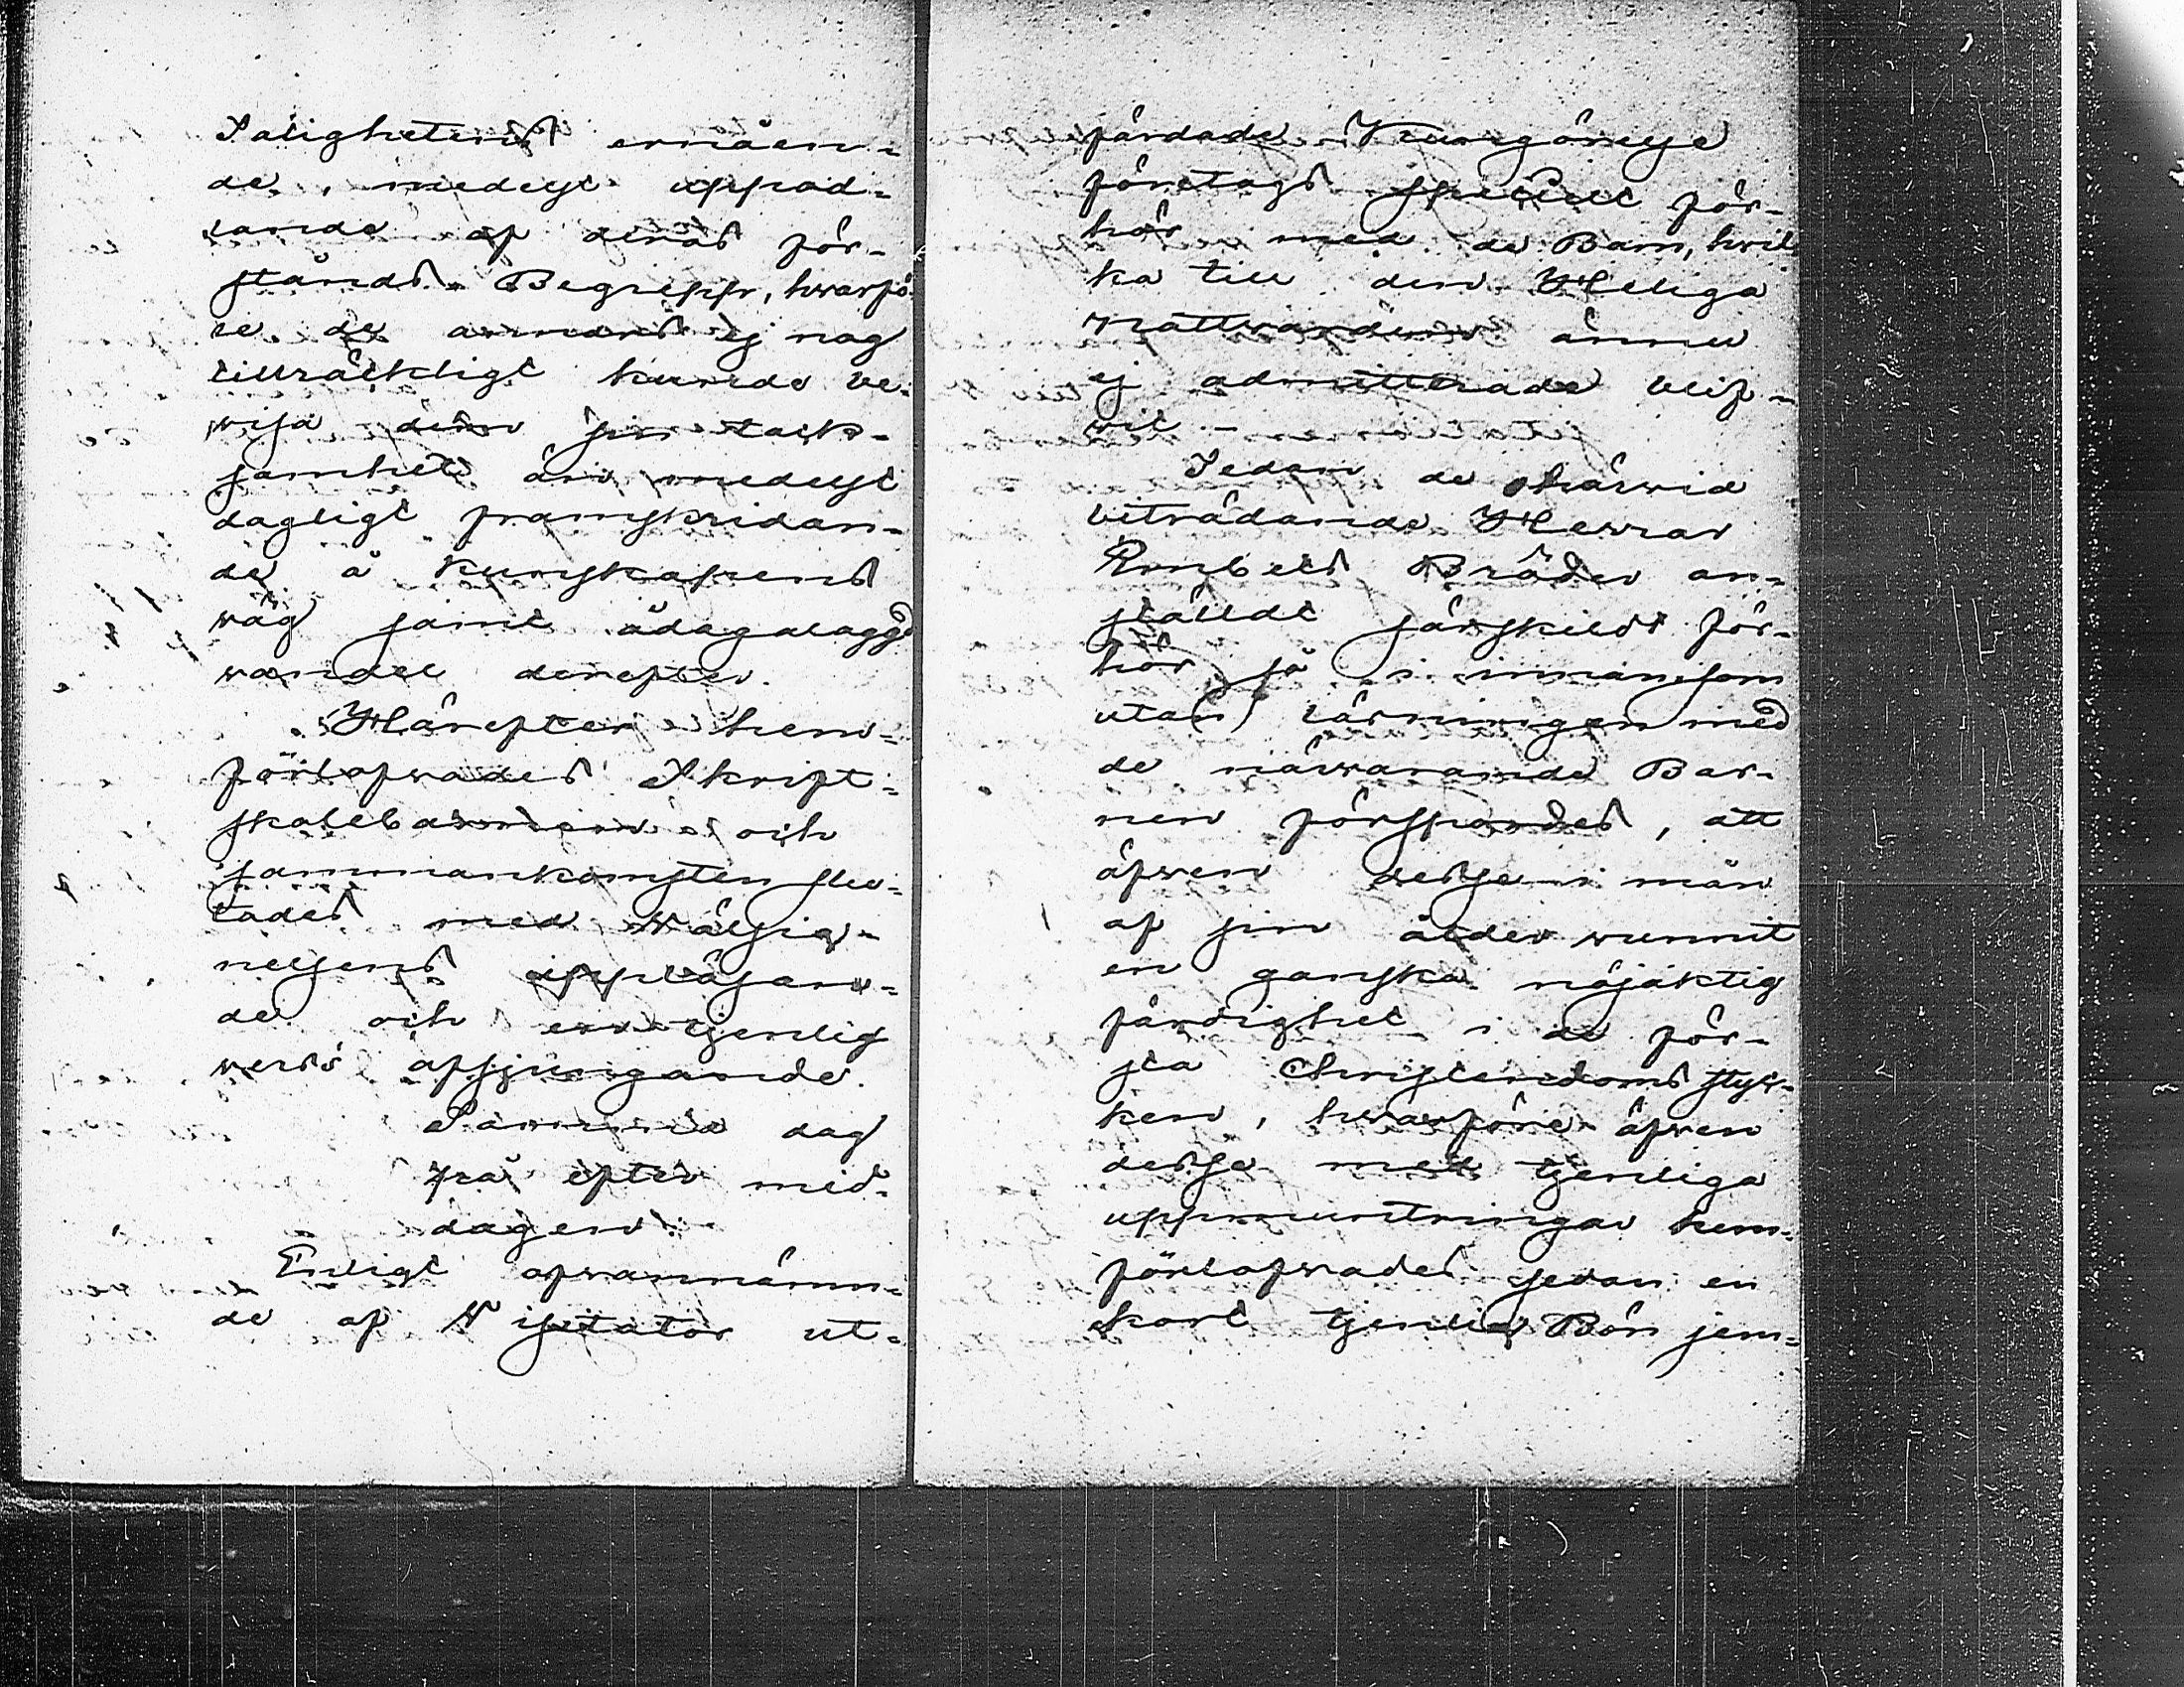 Saligheternas ernåen-
de, medelst uppod-
lande af deras för-
stånds Begrepp, hvarfö-
re de annars ej nog
tillräckligt kunde be-
wisa dem sin tack-
samhet än medelst
dagligt framskridan-
de å kunskapens
wäg samt ådagalaggd
wandel derefter.
Härefter hem-
förlofwades Skrift-
skolebarnen och
sammankomsten slu-
tades med wälsig-
nelsens uppläsan-
de och en tjenlig
werss afsjungande.
Samma dag
på efter mid-
dagen.
Enligt ofwannämn-
de af Visitator ut-
färdade Kungörelse
företogs speciellt för-
hör med de Barn, hvil-
ka till den Heliga
Nattwarden ännu
ej admitterade blif-
wit.
Sedan de härwid
biträdande Herrar
Embets Bröder an-
ställdt särskildt för-
hör så i innan som
utan läsningen med
de närwarande Bar-
nen förspordes, att
äfwen desse i mån
af sin ålder wunnit
en ganska nöjaktig
färdighet i de för-
sta Christendoms styc-
ken, hwarföre äfwen
desse med tjenliga
uppmuntringar hem-
förlofwades sedan en
kort tjenlig Bön jem-